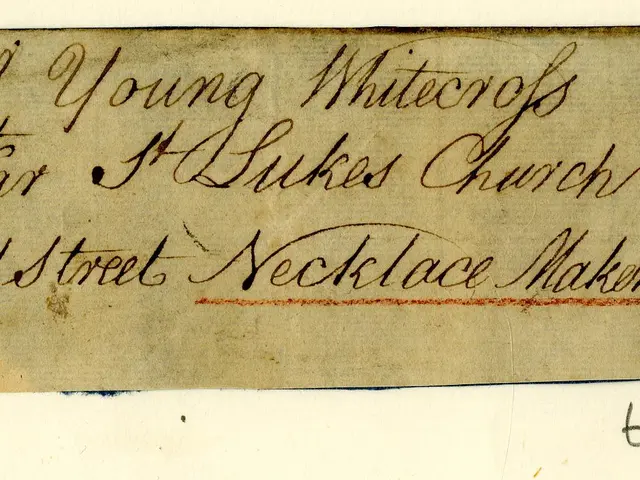 Young Whitecroſs
St Lukes Church
Street Necklace Maker